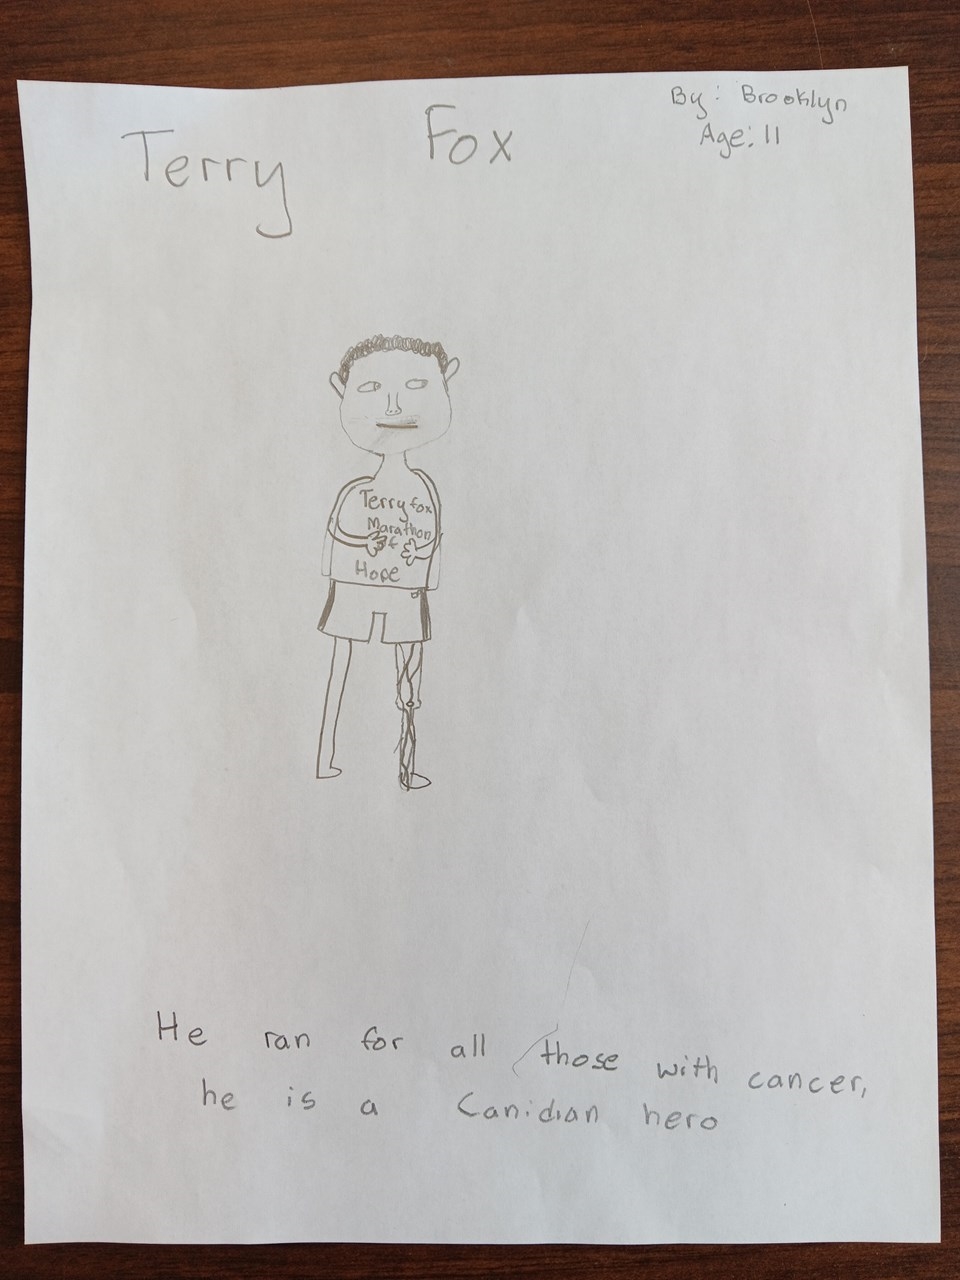 Terry Fox
By: Brooklyn
Age: 11
Terry fox
Marathon
of
Hope
He ran for all those with cancer,
he is a Canidian hero